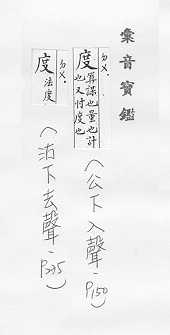 彙音寶鑑
度 ㄉㄨ. 算謀也量也計
也又忖度也
(公下入聲, P150)
度 ㄉㄨ. 法度
(沽下去聲, P235)